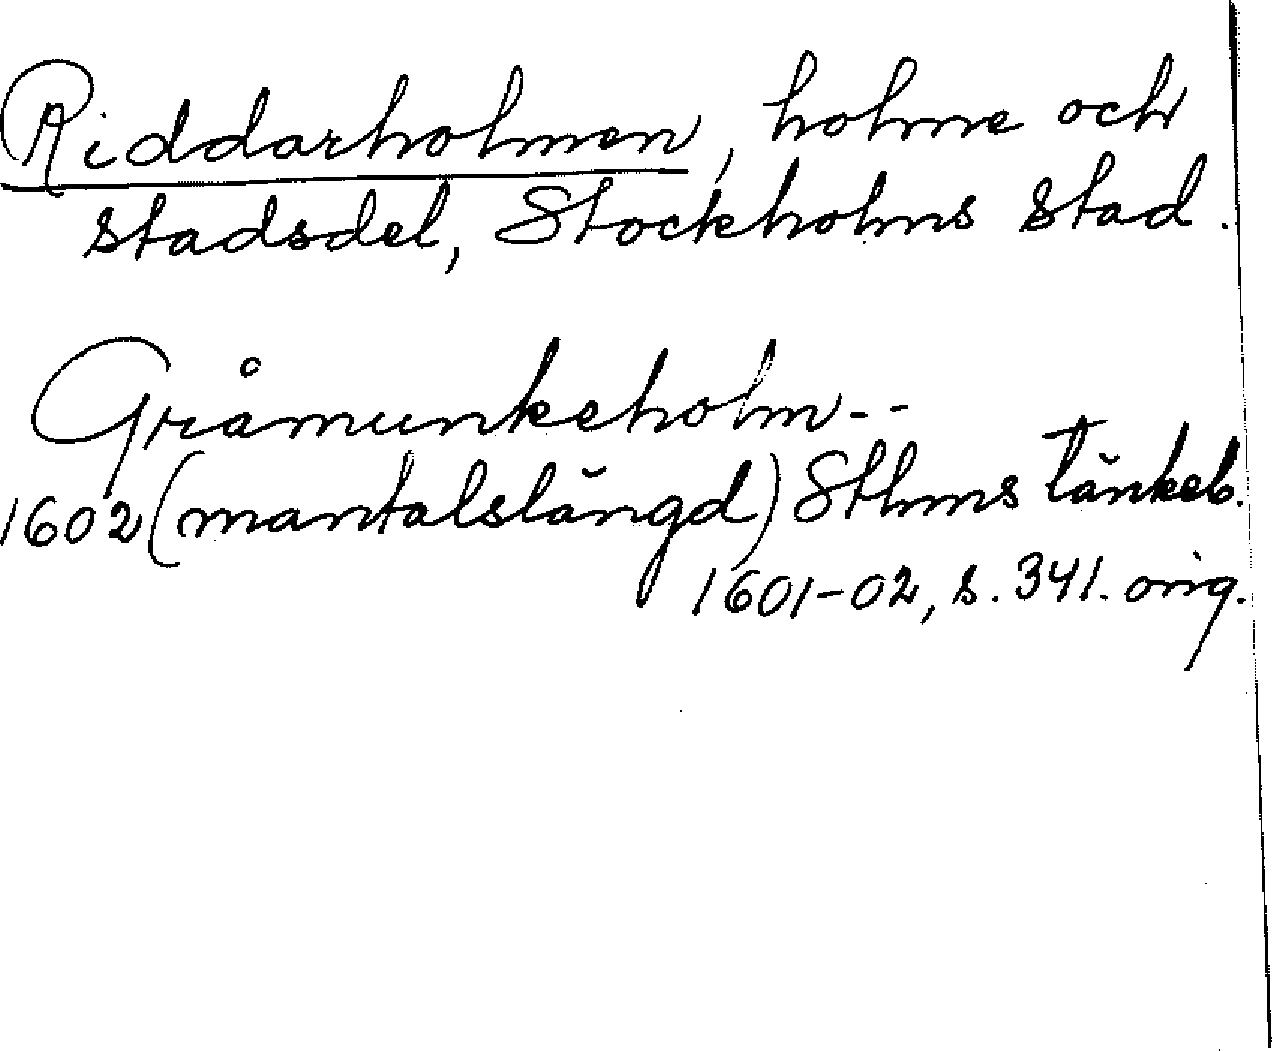 Riddarholmen, holme och
stadsdel, Stockholms stad.
Gråmunkeholm--
1602 (mantalslängd) Sthms tänkeb.
1601-02, s. 341. orig.